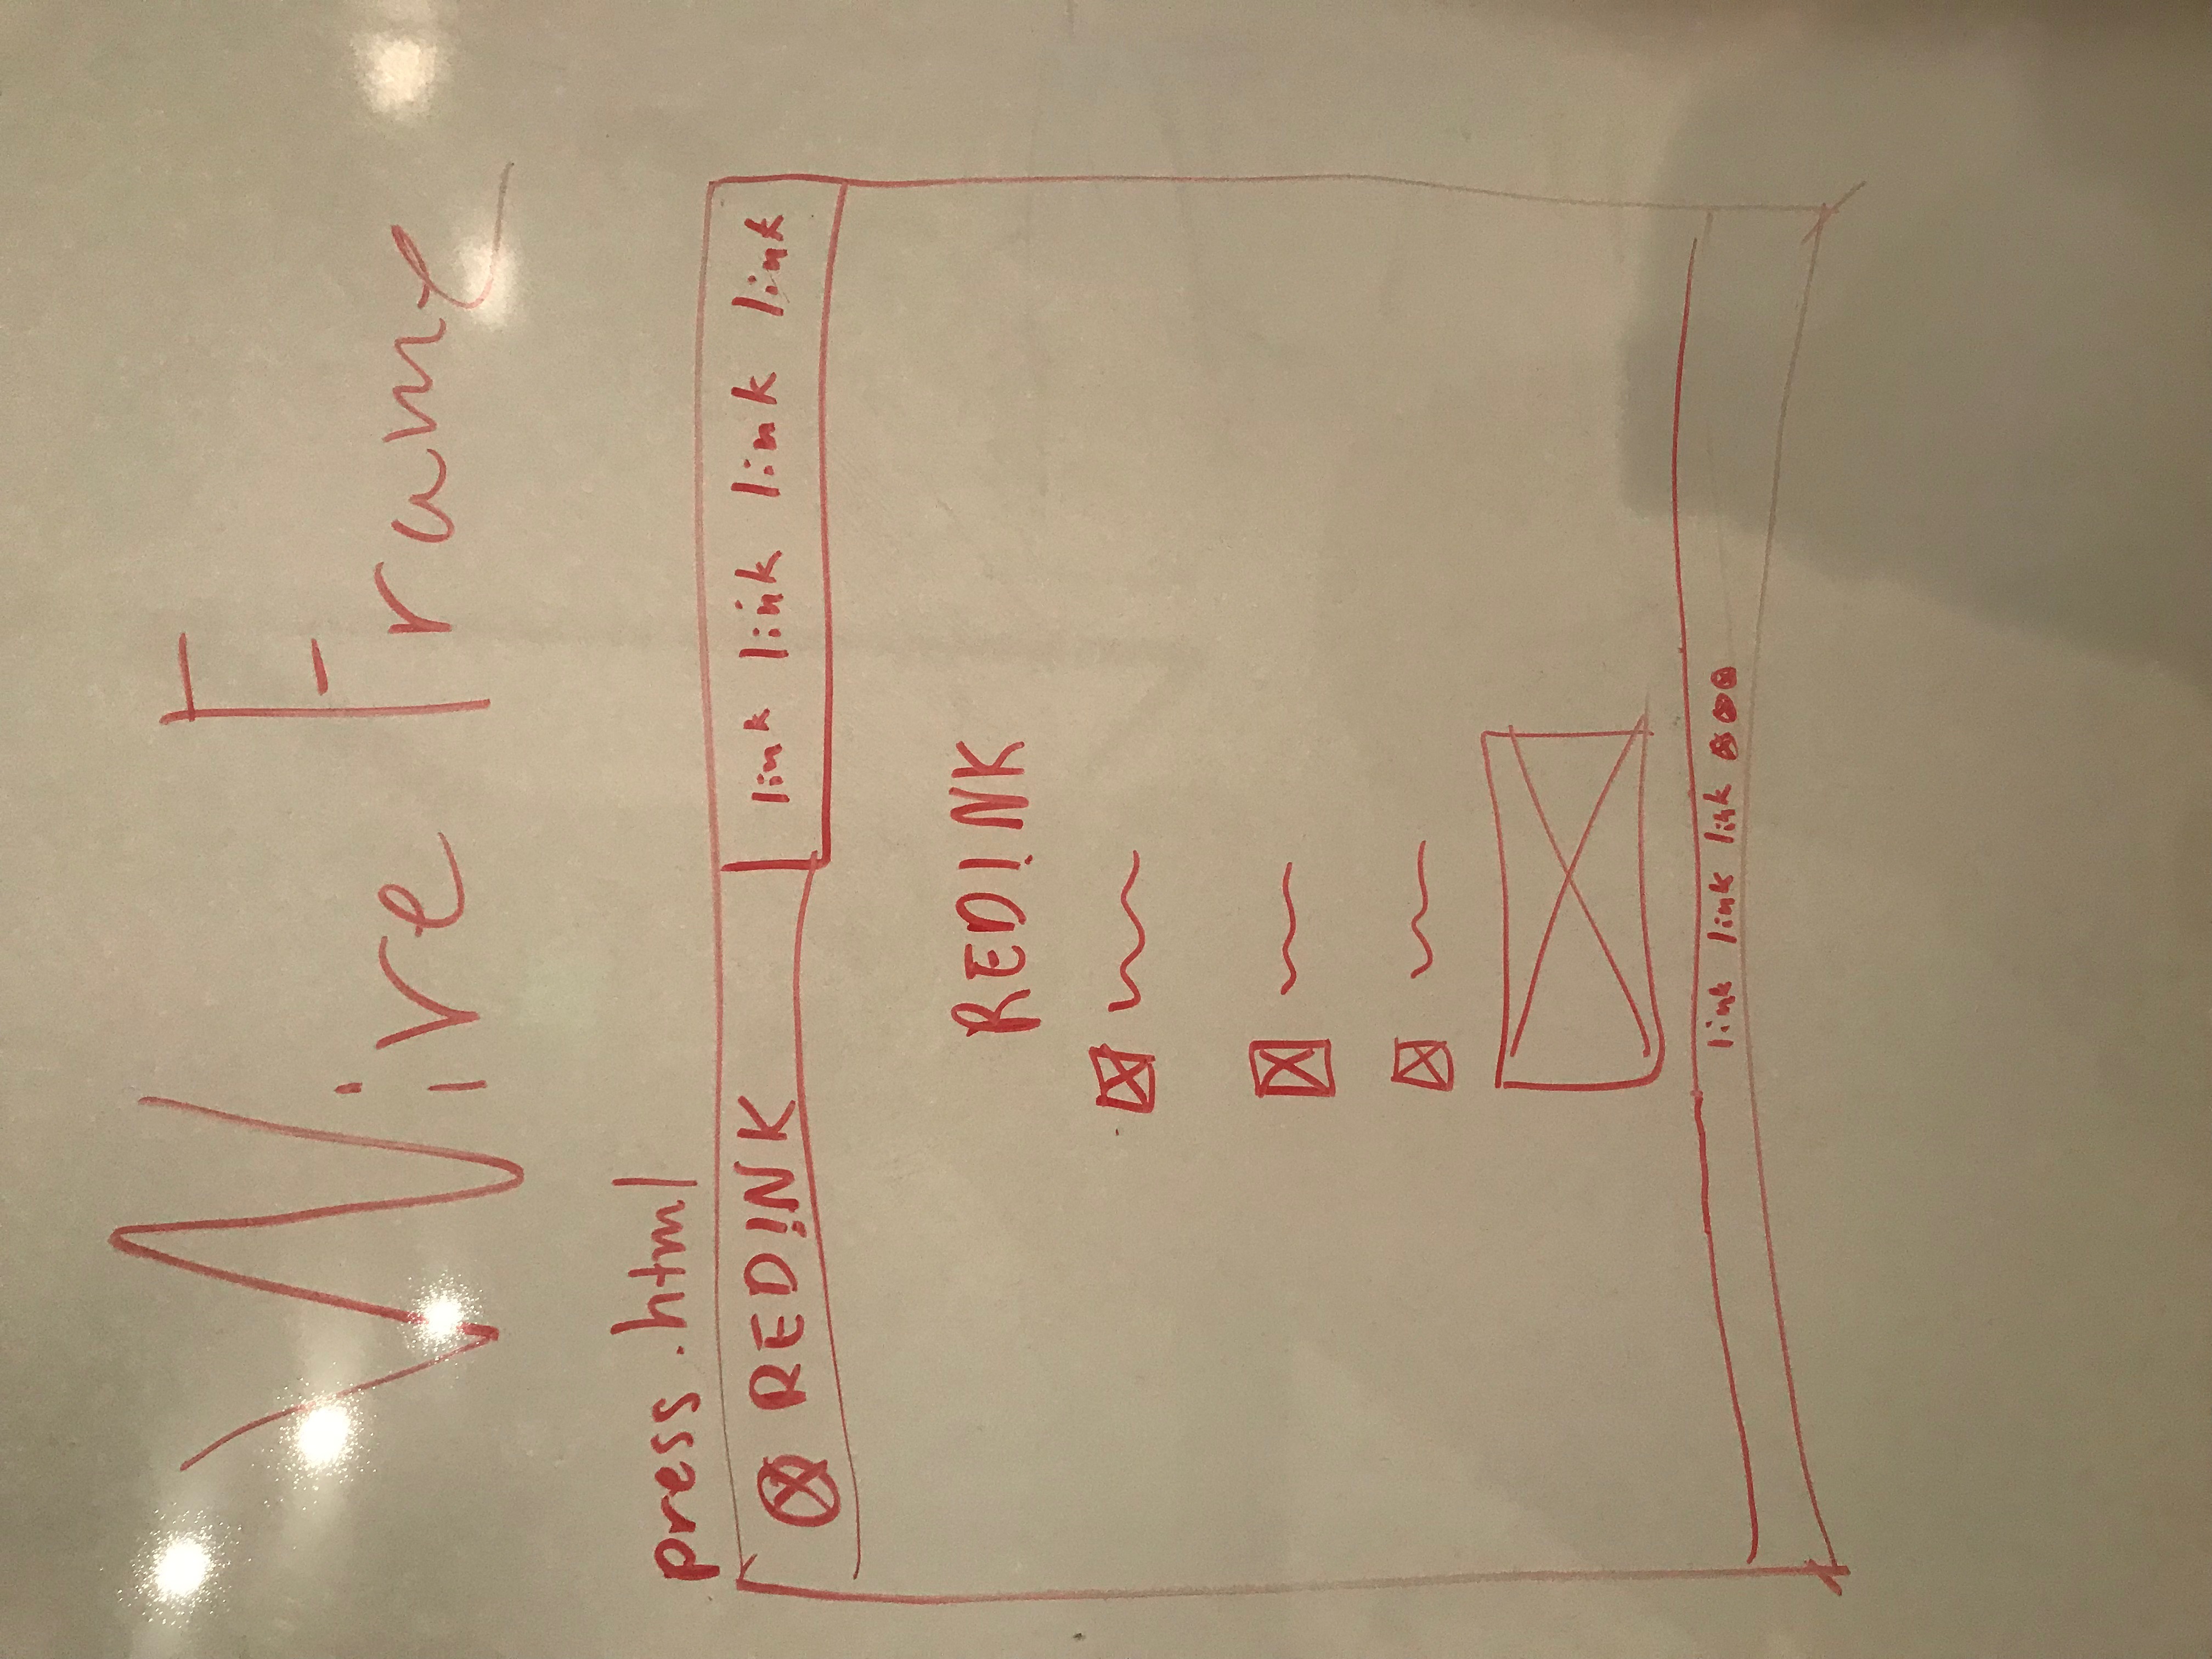 Wire Frame
press.html
RED!NK link link link link
RED!NK
link link link